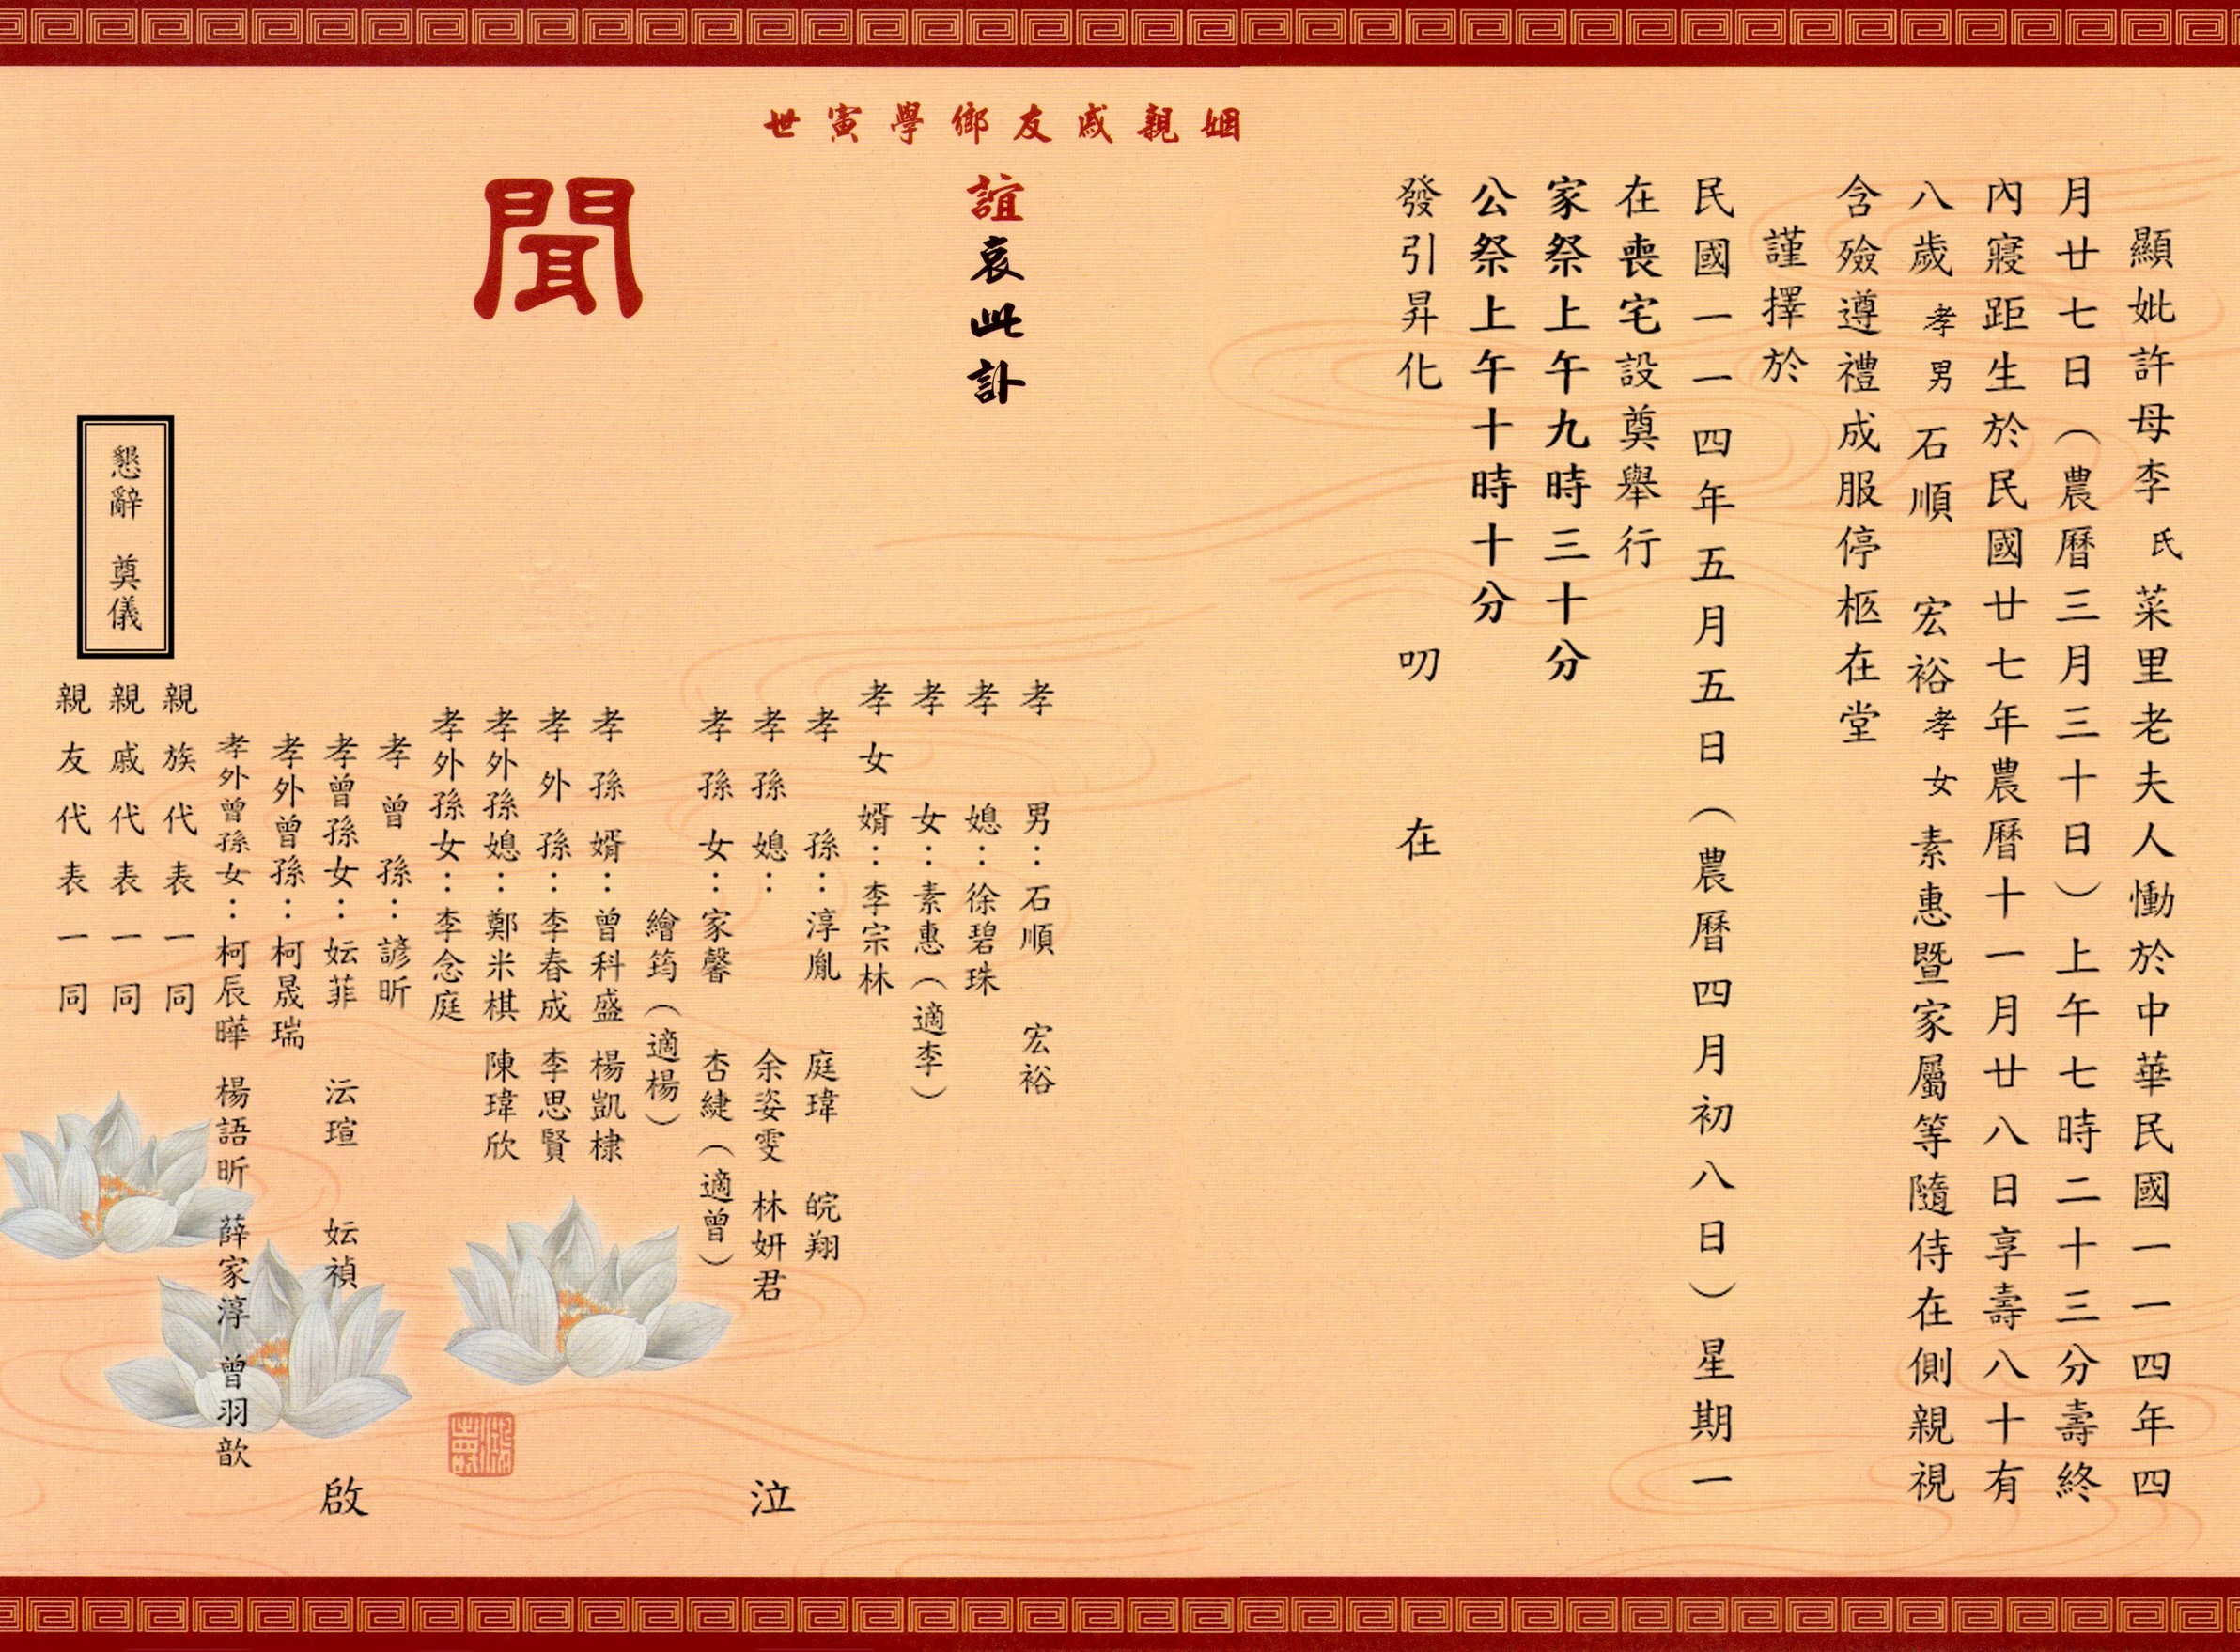 顯妣許母李氏菜里老夫人慟於中華民國一一四年四
月廿七日（農曆三月三十日）上午七時二十三分壽終
內寢距生於民國廿七年農曆十一月廿八日享壽八十有
八歲孝男石順　宏裕孝女素惠暨家屬等隨侍在側親視
含殮遵禮成服停柩在堂
謹擇於
民國一一四年五月五日（農曆四月初八日）星期一
在喪宅設奠舉行
家祭上午九時三十分
公祭上午十時十分
發引昇化　叨　在
姻親戚友鄉學寅世
誼哀此訃
聞
孝男：石順　宏裕
孝媳：徐碧珠
孝女：素惠（適李）
孝女婿：李宗林
孝孫：淳胤　庭瑋　皖翔
孝孫媳：　余姿雯　林妍君
孝孫女：家馨　杏緁（適曾）
繪筠（適楊）
孝孫婿：曾科盛　楊凱棣
孝外孫：李春成　李思賢
孝外孫媳：鄭米棋　陳瑋欣
孝外孫女：李念庭
孝曾孫：諺昕
孝曾孫女：妘菲　沄瑄　妘禎
孝外曾孫：柯晟瑞
孝外曾孫女：柯辰曄　楊語昕　薛家淳　曾羽歆
親族代表一同
親戚代表一同
親友代表一同
泣
啟
懇辭　奠儀